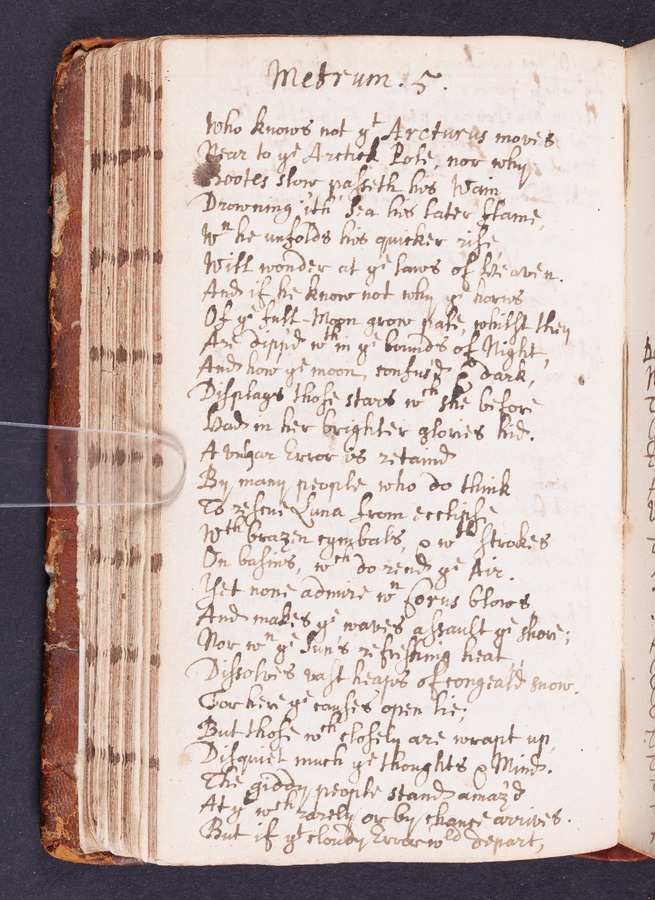 Metrum. 5.
Who knows not ye Arcturus moves
Near to ye Arctick Pole, nor why
Bootes slow passeth his Wain
Drowning ith' Sea his later flame,
Wn he unfolds his quicker rise
Will wonder at ye laws of Heaven.
And if he know not why ye horns
Of ye full-Moon grow pale, whilst they
Are dipp'd wthin ye bounds of Night,
And how ye moon, confus'd & dark,
Displays those stars wch she before
Had in her brighter glories hid.
A vulgar Error is retaind
By many people who do think
To rescue Luna from ecclipse
Wth brazen cymbals, & wth strokes
On basins, wch do rend ye Air.
Yet none admire wn Corus blows
And makes ye waves assault ye shore;
Nor wn ye Sun's refreshing heat
Dissolves vast heaps of congeal'd snow.
For here ye causes open lie;
But those wch closely are wrapt up,
Disquiet much ye thoughts & Mind.
The giddy people stand amaz'd
At wch rarely or by chance arrives.
But if ye cloudy Error wld depart,